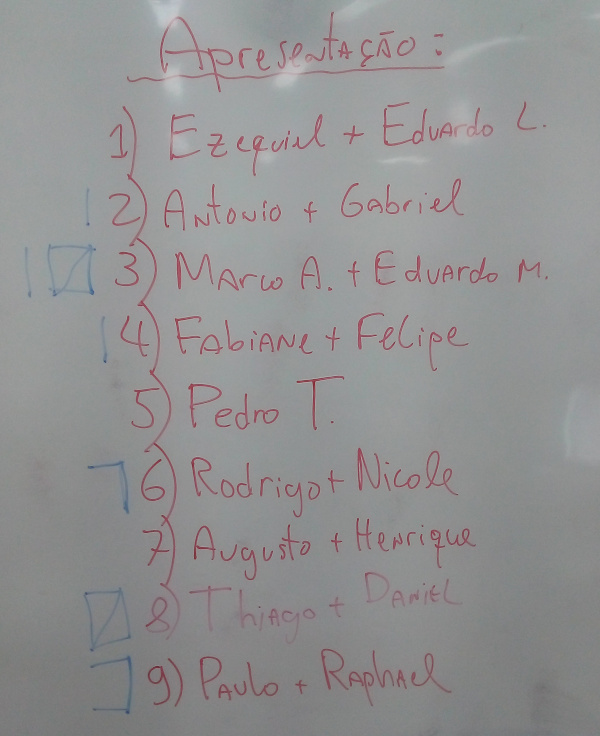 Apresentação:
1) Ezequiel + Eduardo L.
2) Antonio + Gabriel
3) Marco A. + Eduardo M.
4) Fabiane + Felipe
5) Pedro T.
6) Rodrigo + Nicole
7) Augusto + Henrique
8) Thiago + Daniel
9) Paulo + Raphael